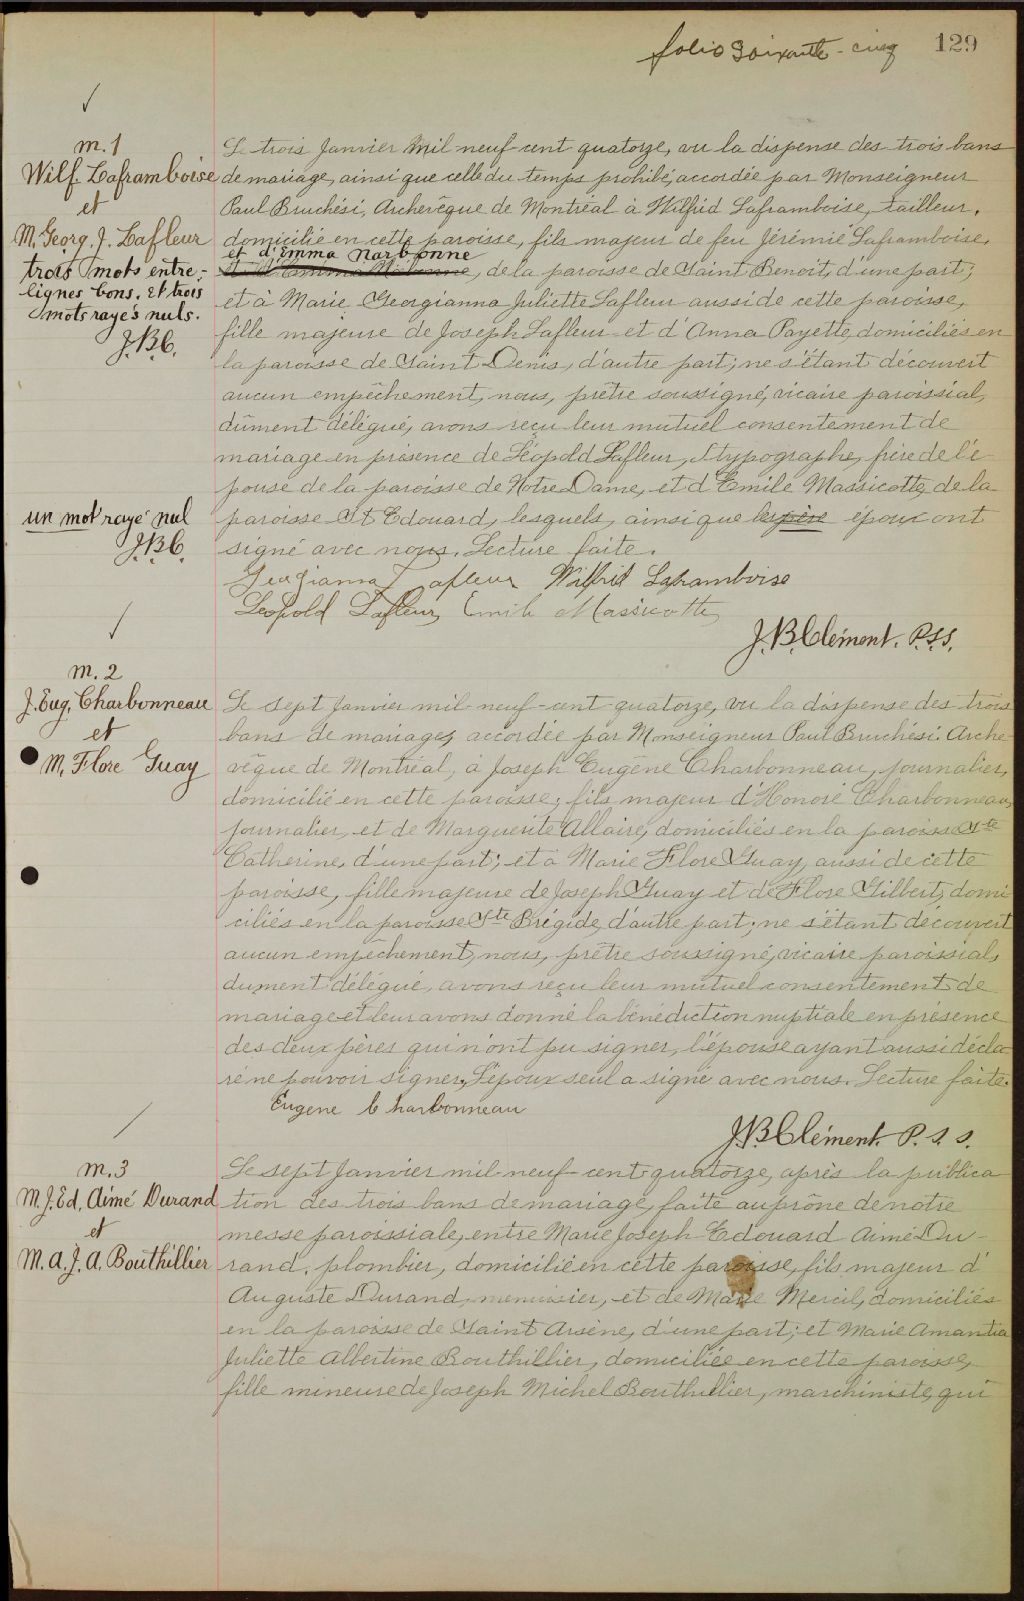 folio Soixante-cinq 129
m. 1
Wilf. Laframboise
et
M. Georg. J. Lafleur
trois mots entre-
lignes bons. Et trois
mots rayés nuls.
J.B.C.
Le trois Janvier Mil neuf cent quatorze, vu la dispense des trois bans
de mariage, ainsi que celle du temps prohibé, accordée par Monseigneur
Paul Bruchési, Archevêque de Montréal à Wilfrid Laframboise, tailleur,
domicilié en cette paroisse, fils majeur de feu Jérémie Laframboise,
et d'Emma Narbonne
et d'Emma Narbonne, de la paroisse de Saint Benoit, d'une part;
et à Marie Georgianna Juliette Lafleur aussi de cette paroisse,
fille majeure de Joseph Lafleur et d'Anna Payette, domiciliés en
la paroisse de Saint Denis, d'autre part; ne s'étant découvert
aucun empêchement, nous, prêtre soussigné, vicaire paroissial,
dûment délégué, avons reçu leur mutuel consentement de
mariage en présence de Léopold Lafleur, typographe, frère de l'é-
pouse de la paroisse de Notre Dame, et d'Emile Massicotte, de la
paroisse St Edouard, lesquels, ainsi que les père époux ont
signé avec nous. Lecture faite.
un mot rayé nul
J.B.C.
Georgianna Lafleur Wilfrid Laframboise
Léopold Lafleur, Emile Massicotte
J.B. Clément. P.S.S.
m. 2
J. Eug. Charbonneau
et
M. Flore Guay
Le sept Janvier mil-neuf-cent quatorze, vu la dispense des trois
bans de mariage, accordée par Monseigneur Paul Bruchési. Arche-
vêque de Montréal, à Joseph Eugène Charbonneau, journalier,
domicilié en cette paroisse, fils majeur d'Honoré Charbonneau,
journalier, et de Marguerite Allaire, domiciliés en la paroisse Ste
Catherine, d'une part; et à Marie Flore Guay, aussi de cette
paroisse, fille majeure de Joseph Guay et de Flore Gilbert, domi-
ciliés en la paroisse Ste Brigide, d'autre part; ne s'étant découvert
aucun empêchement, nous, prêtre soussigné, vicaire paroissial,
dument délégué, avons reçu leur mutuel consentement de
mariage et leur avons donné la bénédiction nuptiale en présence
des deux pères qui n'ont pu signer, l'épouse ayant aussi décla-
ré ne pouvoir signer, l'époux seul a signé avec nous. Lecture faite.
Eugene Charbonneau
J.B. Clément. P.S.S.
m. 3
M. J. Ed. Aimé Durand
et
M. A. J. A. Bouthillier
Le sept Janvier mil-neuf-cent-quatorze, après la publica-
tion des trois bans de mariage, faite au prône de notre
messe paroissiale, entre Marie Joseph Edouard Aimé Du-
rand, plombier, domicilié en cette paroisse, fils majeur d'
Auguste Durand, menuisier, et de Marie Mercil, domiciliés
en la paroisse de Saint Arsène, d'une part; et Marie Amantia
Juliette Albertine Bouthillier, domiciliée en cette paroisse,
fille mineure de Joseph Michel Bouthillier, machiniste, qui